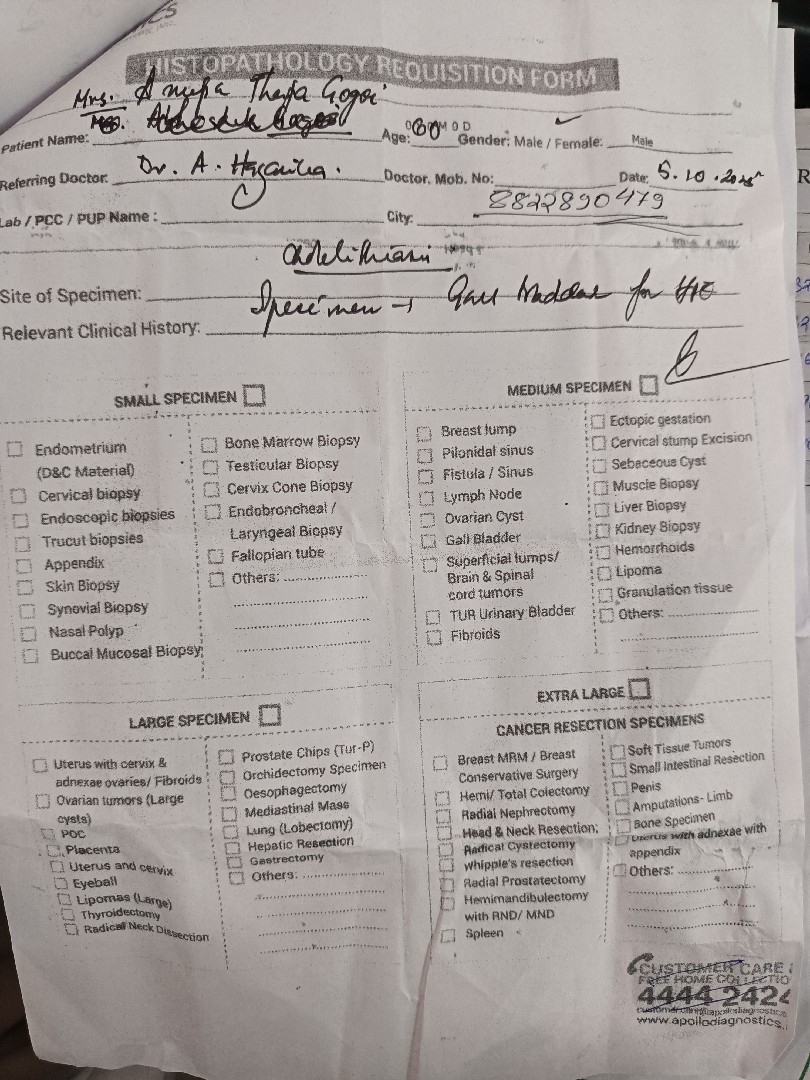 HISTOPATHOLOGY REQUISITION FORM
Mrs. Anupa Gogoi
Patient Name: Age: 60 Gender: Male / Female: Male
Referring Doctor: Dr. A. Hazarika. Doctor. Mob. No: Date: 5.10.2025
Lab / PCC / PUP Name : City: 8822890479
Site of Specimen:
Specimen → Gall bladder for H/E
Relevant Clinical History:
SMALL SPECIMEN
Endometrium
(D&C Material)
Cervical biopsy
Endoscopic biopsies
Trucut biopsies
Appendix
Skin Biopsy
Synovial Biopsy
Nasal Polyp
Buccal Mucosal Biopsy
Bone Marrow Biopsy
Testicular Biopsy
Cervix Cone Biopsy
Endobroncheal /
Laryngeal Biopsy
Fallopian tube
Others:
MEDIUM SPECIMEN
Breast lump
Pilonidal sinus
Fistula / Sinus
Lymph Node
Ovarian Cyst
Gall Bladder
Superficial lumps/
Brain & Spinal
cord tumors
TUR Urinary Bladder
Fibroids
Ectopic gestation
Cervical stump Excision
Sebaceous Cyst
Muscle Biopsy
Liver Biopsy
Kidney Biopsy
Hemorrhoids
Lipoma
Granulation tissue
Others:
LARGE SPECIMEN
Uterus with cervix &
adnexae ovaries/ Fibroids
Ovarian tumors (Large
cysts)
POC
Placenta
Uterus and cervix
Eyeball
Lipomas (Large)
Thyroidectomy
Radical Neck Dissection
Prostate Chips (Tur-P)
Orchidectomy Specimen
Oesophagectomy
Mediastinal Mass
Lung (Lobectomy)
Hepatic Resection
Gastrectomy
Others:
EXTRA LARGE
CANCER RESECTION SPECIMENS
Breast MRM / Breast
Conservative Surgery
Hemi/ Total Colectomy
Radial Nephrectomy
Head & Neck Resection;
Radical Cystectomy
whipple's resection
Radial Prostatectomy
Hemimandibulectomy
with RND/ MND
Spleen
Soft Tissue Tumors
Small Intestinal Resection
Penis
Amputations- Limb
Bone Specimen
Uterus with adnexae with
appendix
Others:
CUSTOMER CARE
FREE HOME COLLECTIO
4444 242
www.apollodiagnostics.